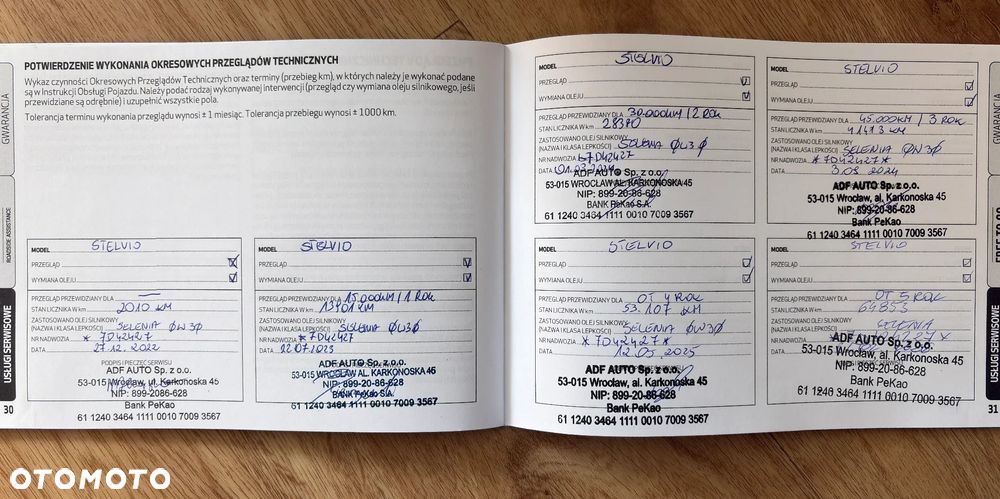 POTWIERDZENIE WYKONANIA OKRESOWYCH PRZEGLĄDÓW TECHNICZNYCH
Wykaz czynności Okresowych Przeglądów Technicznych oraz terminy (przebieg km), w których należy je wykonać podane
są w Instrukcji Obsługi Pojazdu. Należy podać rodzaj wykonywanej interwencji (przegląd czy wymiana oleju silnikowego, jeśli
przewidziane są odrębnie) i uzupełnić wszystkie pola.
Tolerancja terminu wykonania przeglądu wynosi ± 1 miesiąc. Tolerancja przebiegu wynosi ± 1000 km.
GWARANCJA
ROADSIDE ASSISTANCE
USŁUGI SERWISOWE
30
MODEL STELVIO
PRZEGLĄD
WYMIANA OLEJU
PRZEGLĄD PRZEWIDZIANY DLA
STAN LICZNIKA W km 2010 KM
ZASTOSOWANO OLEJ SILNIKOWY
(NAZWA I KLASA LEPKOŚCI) SELENIA 0W30
NR NADWOZIA * 7D42427
DATA 27.12.2022
PODPIS I PIECZĘĆ SERWISU
ADF AUTO Sp. z o.o.
53-015 Wrocław, ul. Karkonoska 45
NIP: 899-2086-628
Bank PeKao
61 1240 3464 1111 0010 7009 3567
MODEL STELVIO
PRZEGLĄD
WYMIANA OLEJU
PRZEGLĄD PRZEWIDZIANY DLA 15.000KM / 1 ROK
STAN LICZNIKA W km 13401 KM
ZASTOSOWANO OLEJ SILNIKOWY
(NAZWA I KLASA LEPKOŚCI) SELENIA 0W30
NR NADWOZIA * 7D42427
DATA 12.07.2023
ADF AUTO Sp. z o.o.
53-015 WROCŁAW AL. KARKONOSKA 45
NIP: 899-20-86-628
BANK PeKao S.A.
61 1240 3464 1111 0010 7009 3567
MODEL STELVIO
PRZEGLĄD
WYMIANA OLEJU
PRZEGLĄD PRZEWIDZIANY DLA 30.000KM / 2 ROK
STAN LICZNIKA W km 28370
ZASTOSOWANO OLEJ SILNIKOWY
(NAZWA I KLASA LEPKOŚCI) SELENIA 0W30
NR NADWOZIA 7D42427
DATA
ADF AUTO Sp. z o.o.
53-015 WROCŁAW AL. KARKONOSKA 45
NIP: 899-20-86-628
BANK PeKao S.A.
61 1240 3464 1111 0010 7009 3567
MODEL STELVIO
PRZEGLĄD
WYMIANA OLEJU
PRZEGLĄD PRZEWIDZIANY DLA 45.000KM / 3 ROK
STAN LICZNIKA W km 41413 KM
ZASTOSOWANO OLEJ SILNIKOWY
(NAZWA I KLASA LEPKOŚCI) SELENIA 0W30
NR NADWOZIA * 7D42427 *
DATA 2024
ADF AUTO Sp. z o.o.
53-015 Wrocław, al. Karkonoska 45
NIP: 899-20-86-628
Bank PeKao
61 1240 3464 1111 0010 7009 3567
MODEL STELVIO
PRZEGLĄD
WYMIANA OLEJU
PRZEGLĄD PRZEWIDZIANY DLA OT 4 ROK
STAN LICZNIKA W km 53.107 KM
ZASTOSOWANO OLEJ SILNIKOWY
(NAZWA I KLASA LEPKOŚCI) SELENIA 0W30
NR NADWOZIA * 7D42427 *
DATA 12.05.2025
ADF AUTO Sp. z o.o.
53-015 Wrocław, al. Karkonoska 45
NIP: 899-20-86-628
Bank PeKao
61 1240 3464 1111 0010 7009 3567
MODEL STELVIO
PRZEGLĄD
WYMIANA OLEJU
PRZEGLĄD PRZEWIDZIANY DLA OT 5 ROK
STAN LICZNIKA W km 64853
ZASTOSOWANO OLEJ SILNIKOWY
(NAZWA I KLASA LEPKOŚCI) SELENIA
NR NADWOZIA
DATA
ADF AUTO Sp. z o.o.
53-015 Wrocław, al. Karkonoska 45
NIP: 899-20-86-628
Bank PeKao
61 1240 3464 1111 0010 7009 3567
GWARANCJA
USŁUGI SERWISOWE
31
OTOMOTO